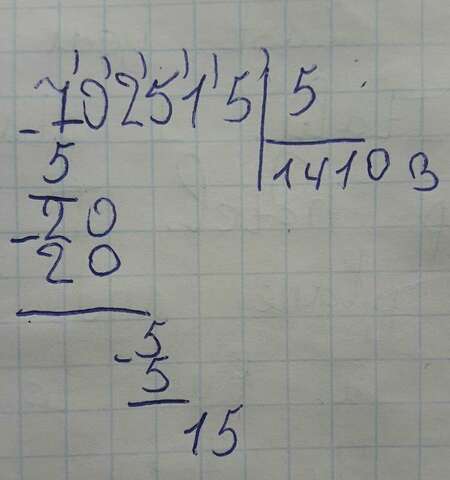 702515 5
- 5 14103
20
- 20
5
- 5
15